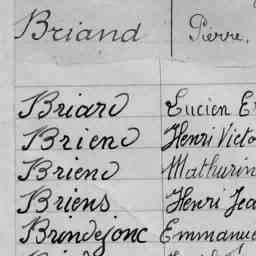 Briand Pierre.
Briard Lucien E
Briend Henri Victo
Briend Mathurin
Briens Henri Jea
Brindejonc Emmanue